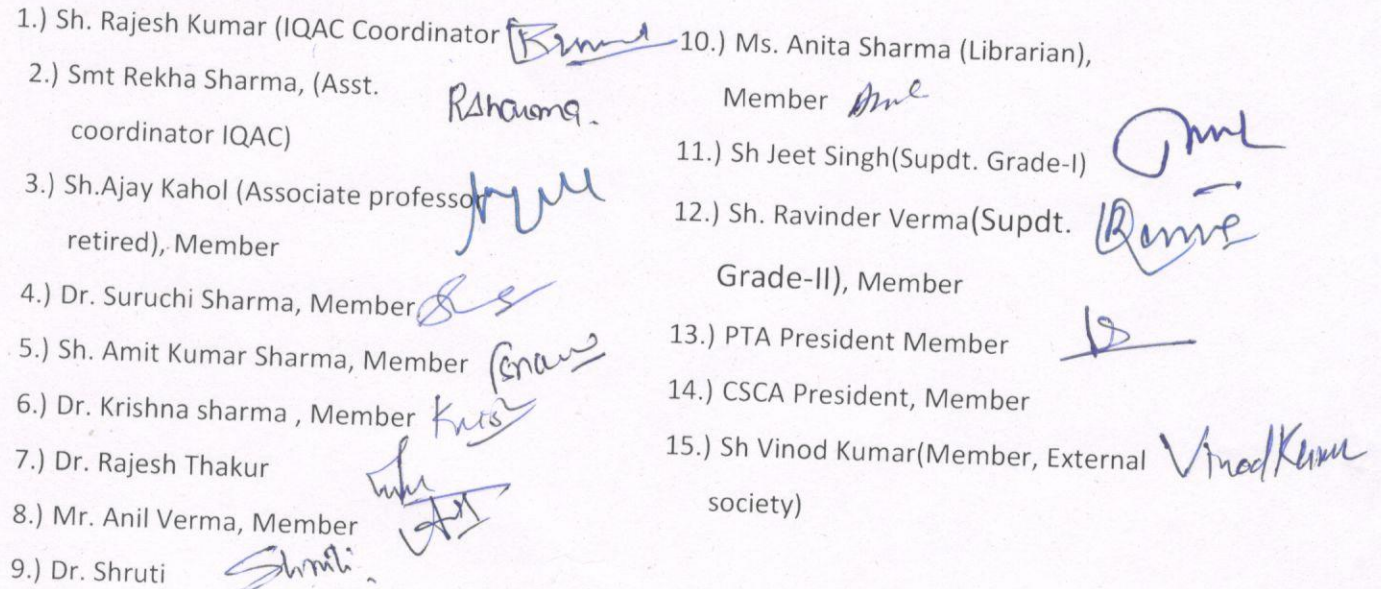 1.) Sh. Rajesh Kumar (IQAC Coordinator
2.) Smt Rekha Sharma, (Asst.
RSharma.
coordinator IQAC)
3.) Sh.Ajay Kahol (Associate professor
retired), Member
4.) Dr. Suruchi Sharma, Member
5.) Sh. Amit Kumar Sharma, Member
6.) Dr. Krishna sharma , Member
7.) Dr. Rajesh Thakur
8.) Mr. Anil Verma, Member
9.) Dr. Shruti Shruti.
10.) Ms. Anita Sharma (Librarian),
Member
11.) Sh Jeet Singh(Supdt. Grade-I)
12.) Sh. Ravinder Verma(Supdt.
Grade-II), Member
13.) PTA President Member
14.) CSCA President, Member
15.) Sh Vinod Kumar(Member, External Vinod Kumar
society)